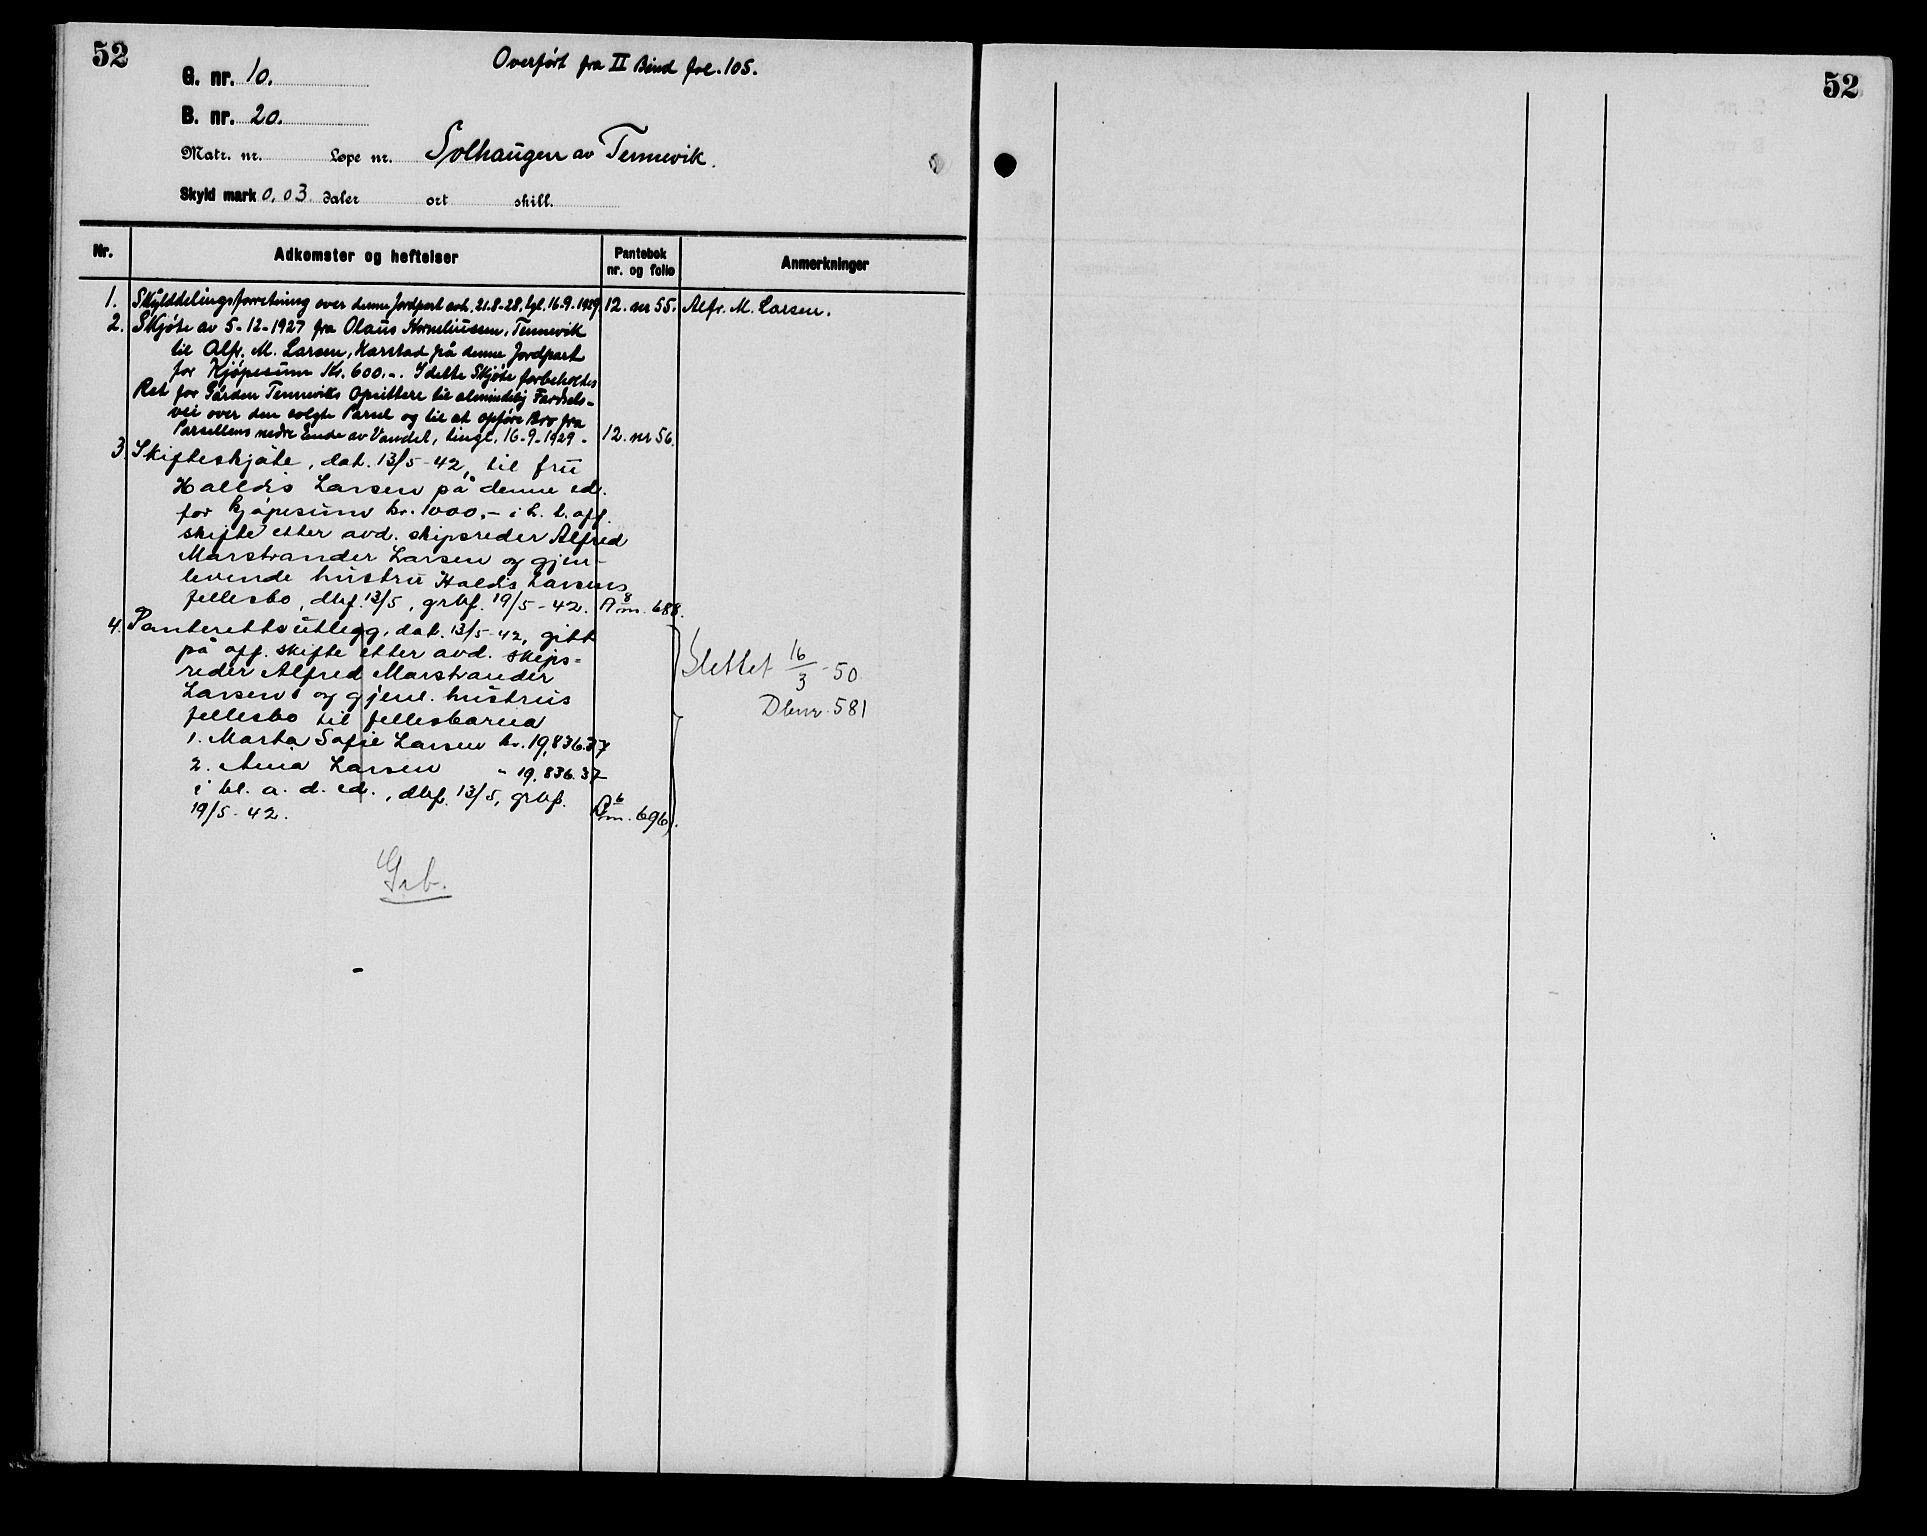 52
Overført fra II Bind fol. 105.
G. nr. 10.
B. nr. 20.
Matr. nr. Løpe nr. Solhaugen av Tennevik.
Skyld mark 0,03 daler ort skill.
Nr. Adkomster og heftelser Pantebok nr. og folio Anmerkninger
1. Skylddelingsforretning over denne Jordpart avh. 21.8-28, tgl. 16.9.1929 12. nr 55. Alfr. M. Larsen.
2. Skjøte av 5-12-1927 fra Olaus Korneliussen, Tennevik
til Alfr. M. Larsen, Harstad på denne Jordpart
for Kjøpesum Kr. 600.-. I dette Skjøte forbeholdes
Ret for Gården Tenneviks Opsittere til almindelig Færdsels-
vei over den solgte Parsel og til at opføre Bro fra
Parsellens nedre Ende av Vandet, tingl. 16-9-1929- 12. nr 56.
3. Skifteskjøte, dat. 13/5-42, til fru
Halldis Larsen på denne ed.
for kjøpesum kr. 1000,- i h. t. off.
skifte etter avd. skipsreder Alfred
Marstrander Larsen og gjen-
levende hustru Haldis Larsens
fellesbo, dbf. 13/5, grbf. 19/5-42. A 8 m. 688.
4. Panterettsutlegg, dat. 13/5-42, gitt
på off. skifte etter avd. skips=
reder Alfred Marstrander
Larsens og gjenl. hustrus
fellesbo til fellesbarna
1. Marta Sofie Larsen kr. 19,836.37
2. Anna Larsen " 19,836.37
i bl. a. d. ed., dbf. 13/5, grbf.
19/5-42. 6 m. 696.
Slettet 16/3-50
Dbnr. 581
Grb.
52